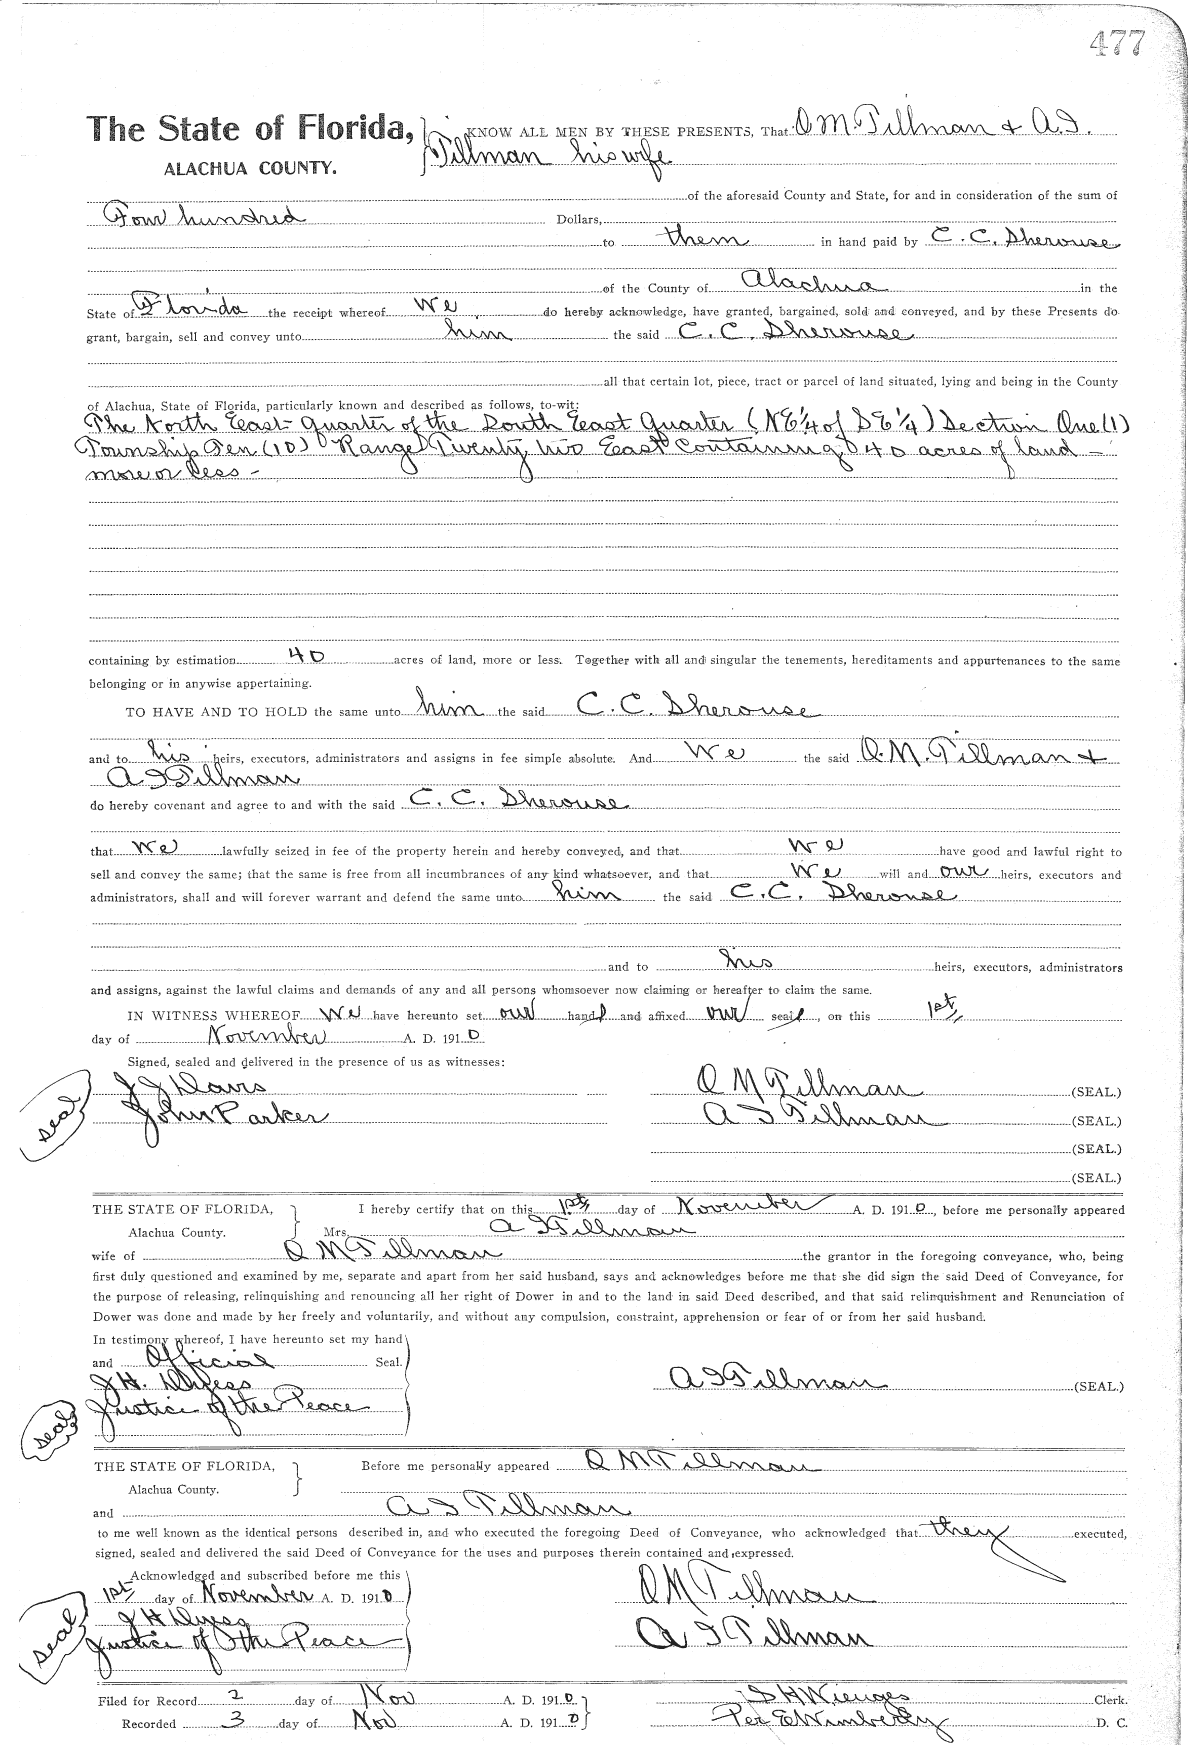 477
The State of Florida, KNOW ALL MEN BY THESE PRESENTS, That O M. Tillman & A. I.
ALACHUA COUNTY. Tillman his wife
of the aforesaid County and State, for and in consideration of the sum of
Four hundred Dollars,
to them in hand paid by C. C. Sherouse
of the County of Alachua in the
State of Florida the receipt whereof We do hereby acknowledge, have granted, bargained, sold and conveyed, and by these Presents do
grant, bargain, sell and convey unto him the said C. C. Sherouse
all that certain lot, piece, tract or parcel of land situated, lying and being in the County
of Alachua, State of Florida, particularly known and described as follows, to-wit:
The North East- Quarter of the South East Quarter (NE 1/4 of SE 1/4) Section One (1)
Township Ten (10) Range Twenty two East Containing 40 acres of land -
more or less -
containing by estimation 40 acres of land, more or less. Together with all and singular the tenements, hereditaments and appurtenances to the same
belonging or in anywise appertaining.
TO HAVE AND TO HOLD the same unto him the said C. C. Sherouse
and to his heirs, executors, administrators and assigns in fee simple absolute. And We the said O. M. Tillman &
A I Tillman
do hereby covenant and agree to and with the said C. C. Sherouse
that We lawfully seized in fee of the property herein and hereby conveyed, and that We have good and lawful right to
sell and convey the same; that the same is free from all incumbrances of any kind whatsoever, and that We will and our heirs, executors and
administrators, shall and will forever warrant and defend the same unto him the said C. C. Sherouse
and to his heirs, executors, administrators
and assigns, against the lawful claims and demands of any and all persons whomsoever now claiming or hereafter to claim the same.
IN WITNESS WHEREOF We have hereunto set our hands and affixed our seals, on this 1st,
day of November A. D. 1910
Signed, sealed and delivered in the presence of us as witnesses:
J J Davis O M Tillman (SEAL.)
seal John Parker A I Tillman (SEAL.)
(SEAL.)
(SEAL.)
THE STATE OF FLORIDA, I hereby certify that on this 1st, day of November A. D. 1910, before me personally appeared
Alachua County. Mrs. A I Tillman
wife of O M Tillman the grantor in the foregoing conveyance, who, being
first duly questioned and examined by me, separate and apart from her said husband, says and acknowledges before me that she did sign the said Deed of Conveyance, for
the purpose of releasing, relinquishing and renouncing all her right of Dower in and to the land in said Deed described, and that said relinquishment and Renunciation of
Dower was done and made by her freely and voluntarily, and without any compulsion, constraint, apprehension or fear of or from her said husband.
In testimony whereof, I have hereunto set my hand
and Official Seal.
J H. Dyess A I Tillman (SEAL.)
seal Justice of the Peace
THE STATE OF FLORIDA, Before me personally appeared O M Tillman
Alachua County.
and A I Tillman
to me well known as the identical persons described in, and who executed the foregoing Deed of Conveyance, who acknowledged that they executed,
signed, sealed and delivered the said Deed of Conveyance for the uses and purposes therein contained and expressed.
Acknowledged and subscribed before me this
1st day of November A. D. 1910 O M Tillman
J H Dyess
seal Justice of the Peace A I Tillman
Filed for Record 2 day of Nov A. D. 1910 S H Wienges Clerk.
Recorded 3 day of Nov A. D. 1910 Per E Wimberly D. C.